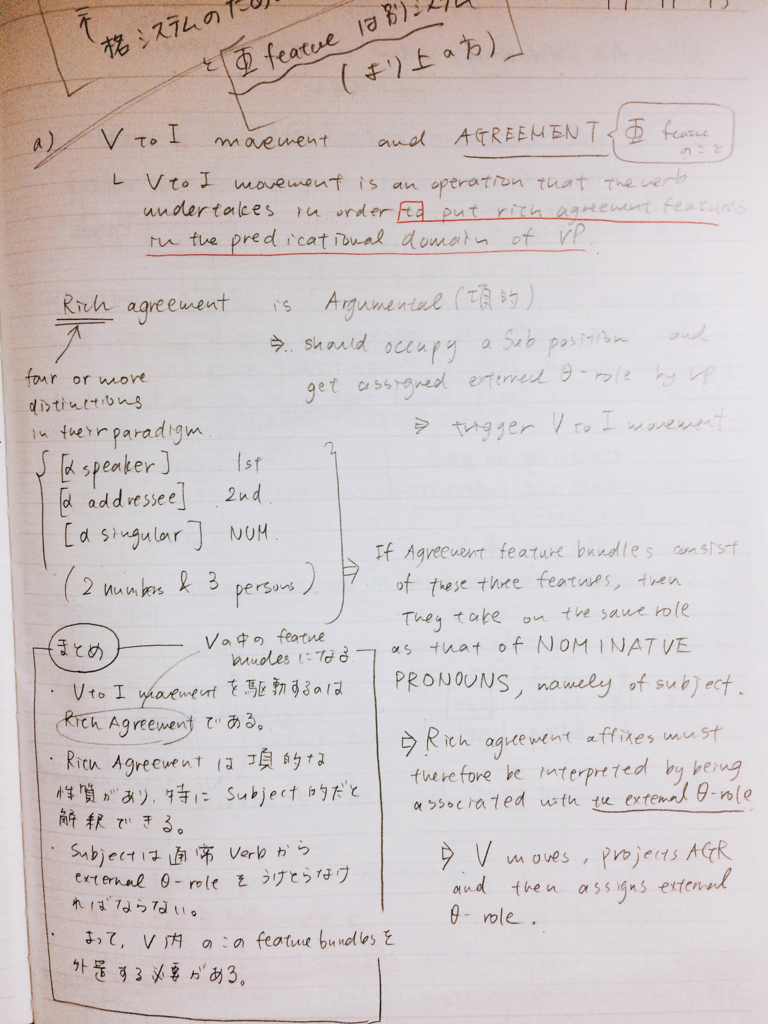 格システムのため
と Φ featue は別システム
(より上の方)
a) V to I movement and AGREEMENT { Φ featue のこと
└ V to I movement is an operation that the verb
undertakes in order to put rich agreement features
in the predicational domain of VP.
Rich agreement is Argumental (項的)
⇒ should occupy a Sub position and
get assigned external θ-role by VP
⇒ trigger V to I movement.
four or more
distinctions
in their paradigm.
[α speaker] 1st
[α addressee] 2nd
[α singular] NUM.
(2 numbers & 3 persons)
⇒ If Agreement feature bundles consist
of these three features, then
They take on the same role
as that of NOMINATVE
PRONOUNS, namely of subject.
⇒ Rich agreement affixes must
therefore be interpreted by being
associated with the external θ-role
⇒ V moves, projects AGR
and then assigns external
θ-role.
まとめ
Vの中の featue
bundles になる
・V to I movement を駆動するのは
Rich Agreement である。
・Rich Agreement は項的な
性質があり、特に Subject 的だと
解釈できる。
・Subject は通常 Verb から
external θ-role をうけとらなけ
ればならない。
・よって、V内のこの feature bundles を
外置する必要がある。